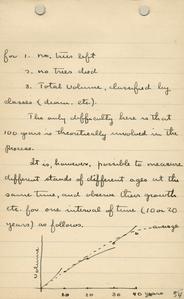 for 1. no. trees left
2. no. trees died
3. Total volume, classified by
classes (diam. etc).
The only difficulty here is that
100 years is theoretically involved in the
process.
It is, however, possible to measure
different stands of different ages at the
same time, and observe their growth
etc. for one interval of time (10 or 20
years) as follows.
average
Volume
10 20 30 40 years